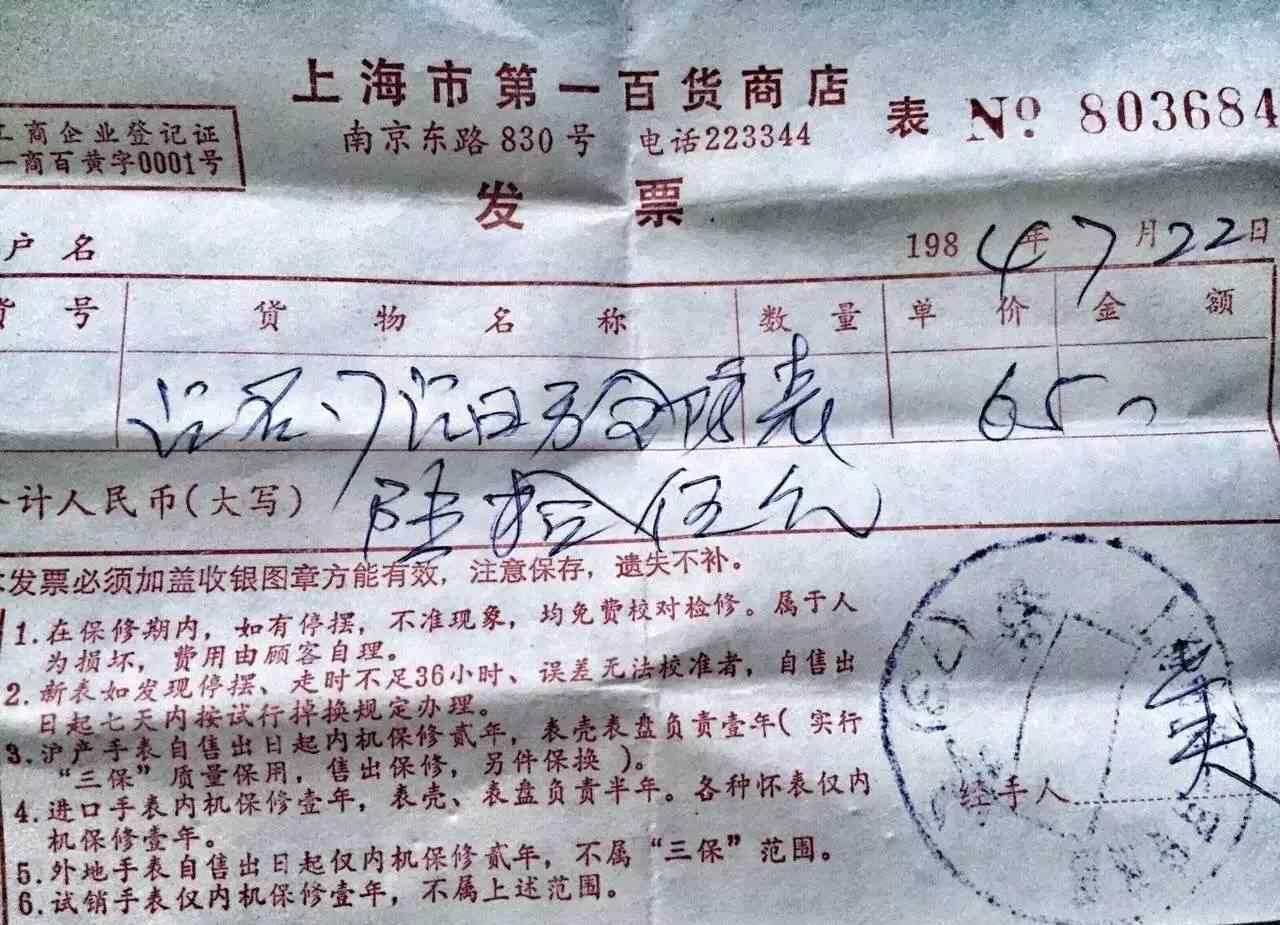 上海市第一百货商店
表 №. 803684
工商企业登记证
南京东路830号 电话223344
一商百黄字0001号
发票
户名
1984年7月22日
货号 货物名称 数量 单价 金额
65
计人民币(大写) 陆拾伍元
本发票必须加盖收银图章方能有效，注意保存，遗失不补。
1.在保修期内，如有停摆，不准现象，均免费校对检修。属于人
为损坏，费用由顾客自理。
2.新表如发现停摆、走时不足36小时、误差无法校准者，自售出
日起七天内按试行掉换规定办理。
3.沪产手表自售出日起内机保修贰年，表壳表盘负责壹年(实行
“三保”质量保用，售出保修，另件保换)。
4.进口手表内机保修壹年，表壳、表盘负责半年。各种怀表仅内
机保修壹年。
5.外地手表自售出日起仅内机保修贰年，不属“三保”范围。
6.试销手表仅内机保修壹年，不属上述范围。
经手人